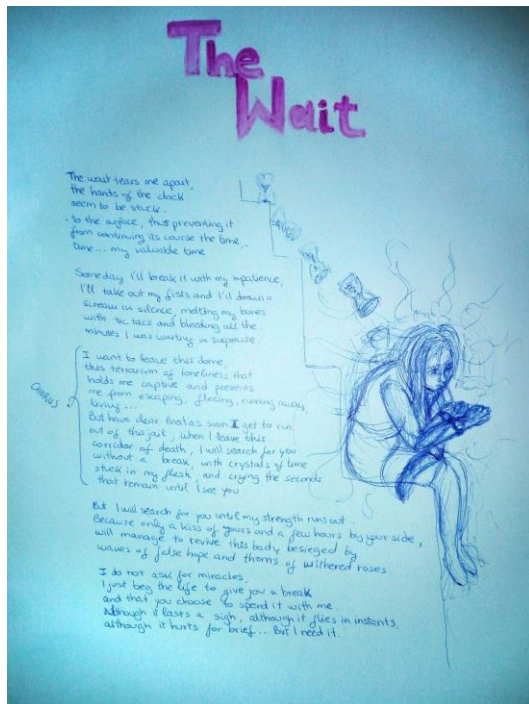 The
Wait
The wait tears me apart,
the hands of the clock
seem to be stuck.
- to the surface, thus preventing it
from continuing its course the time,
time... my valuable time
Someday I'll break it with my impatience,
I'll take out my fists and I'll drown a
scream in silence, melting my bones
with tic tacs and bleeding all the
minutes I was waiting in suspense.
CHORUS
I want to leave this dome,
this terrarium of loneliness that
holds me captive and prevents
me from escaping, fleeing, running away,
living...
But have clear that as soon I get to run
out of this jail, when I leave this
corridor of death, I will search for you
without a break, with crystals of time
stuck in my flesh, and crying the seconds
that remain until I see you
But I will search for you until my strength runs out.
Because only a kiss of yours and a few hours by your side,
will manage to revive this body besieged by
waves of false hope and thorns of withered roses.
I do not ask for miracles,
I just beg the life to give you a break
and that you choose to spend it with me.
Although it lasts a sigh, although it flies in instants,
although it hurts for brief... But I need it.